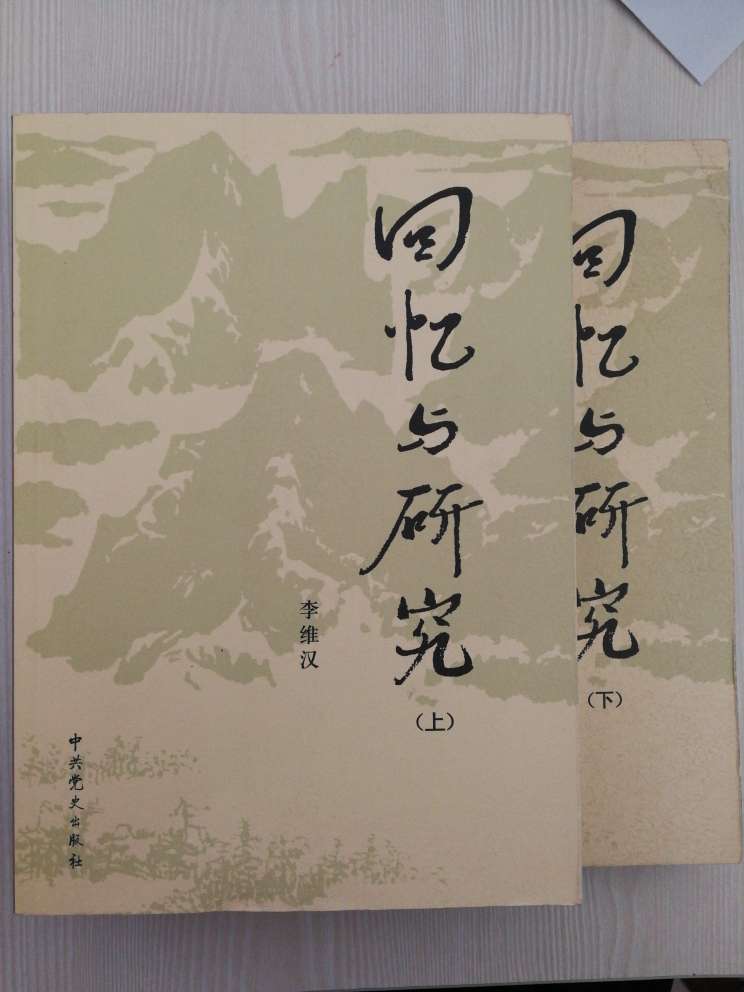 回忆与研究
（上）
李维汉
中共党史出版社
回忆与研究
（下）